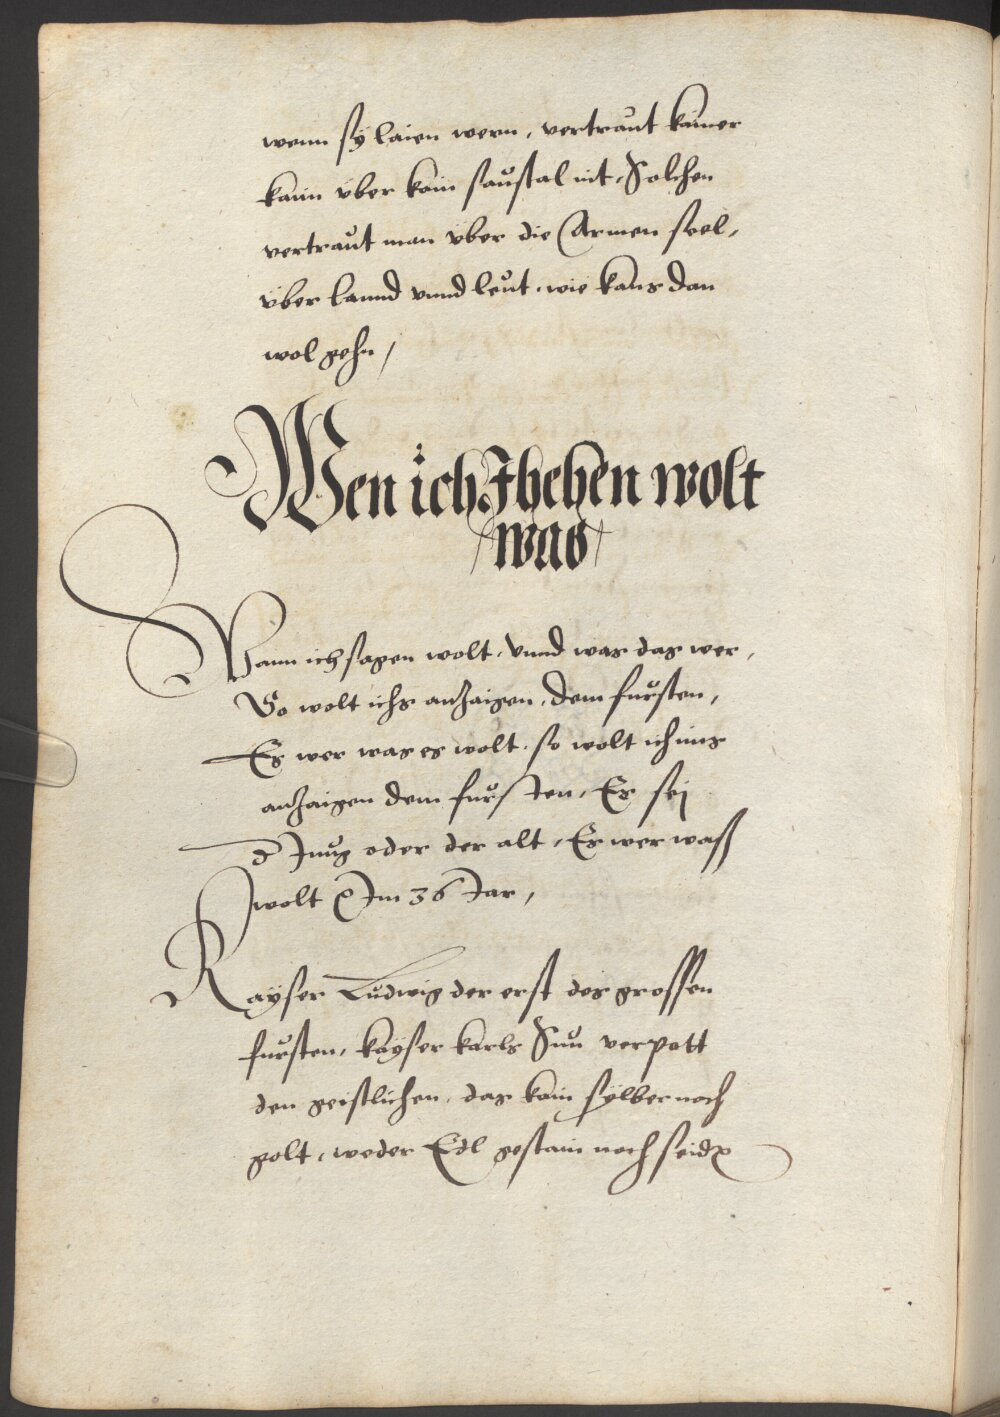 wenn sÿ laien wern, vertraut kainer
kaim über kain saustal nit, Solchen
vertraut man über die Armen seel,
über lannd vnnd leut, wie kans dan
wol gehn /
Wen ich Jhehen wolt
was
Wann ich sagen wolt, Vnnd was das wer,
So wolt ichs anzaigen, dem fursten,
Es wer was es wolt, so wolt ichims
anzaigen dem fursten, Er sei
d Jnng oder der alt, Es wer waß
wolt Jm 36 Jar,
Kayser Ludwig der erst des grossen
fursten, kayser karls Sun verpott
den geistlichen, das kain sylber noch
golt, weder Edl gestain noch seid